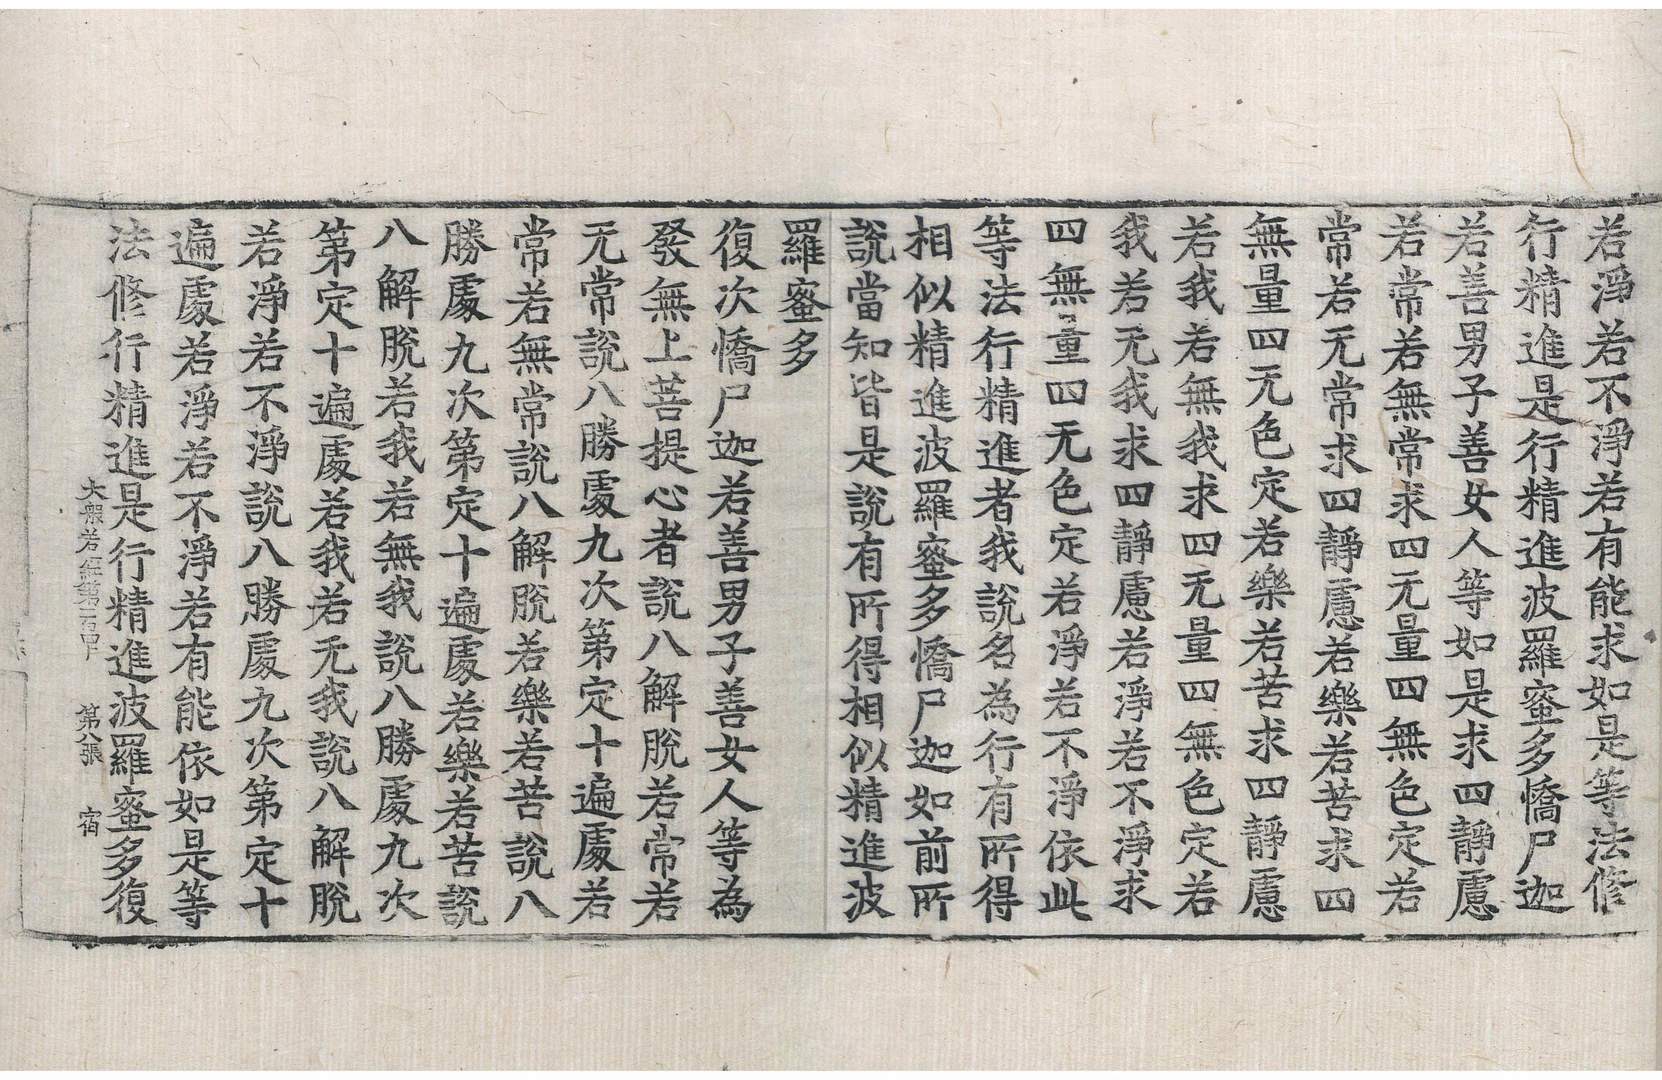 若淨若不淨若有能求如是等法修
行精進是行精進波羅蜜多憍尸迦
若善男子善女人等如是求四靜慮
若常若無常求四无量四無色定若
常若无常求四靜慮若樂若苦求四
無量四无色定若樂若苦求四靜慮
若我若無我求四无量四無色定若
我若无我求四靜慮若淨若不淨求
四無量四无色定若淨若不淨依此
等法行精進者我說名為行有所得
相似精進波羅蜜多憍尸迦如前所
說當知皆是說有所得相似精進波
羅蜜多
復次憍尸迦若善男子善女人等為
發無上菩提心者說八解脫若常若
无常說八勝處九次第定十遍處若
常若無常說八解脫若樂若苦說八
勝處九次第定十遍處若樂若苦說
八解脫若我若無我說八勝處九次
第定十遍處若我若无我說八解脫
若淨若不淨說八勝處九次第定十
遍處若淨若不淨若有能依如是等
法修行精進是行精進波羅蜜多復
大般若經第一百 第八張 宿